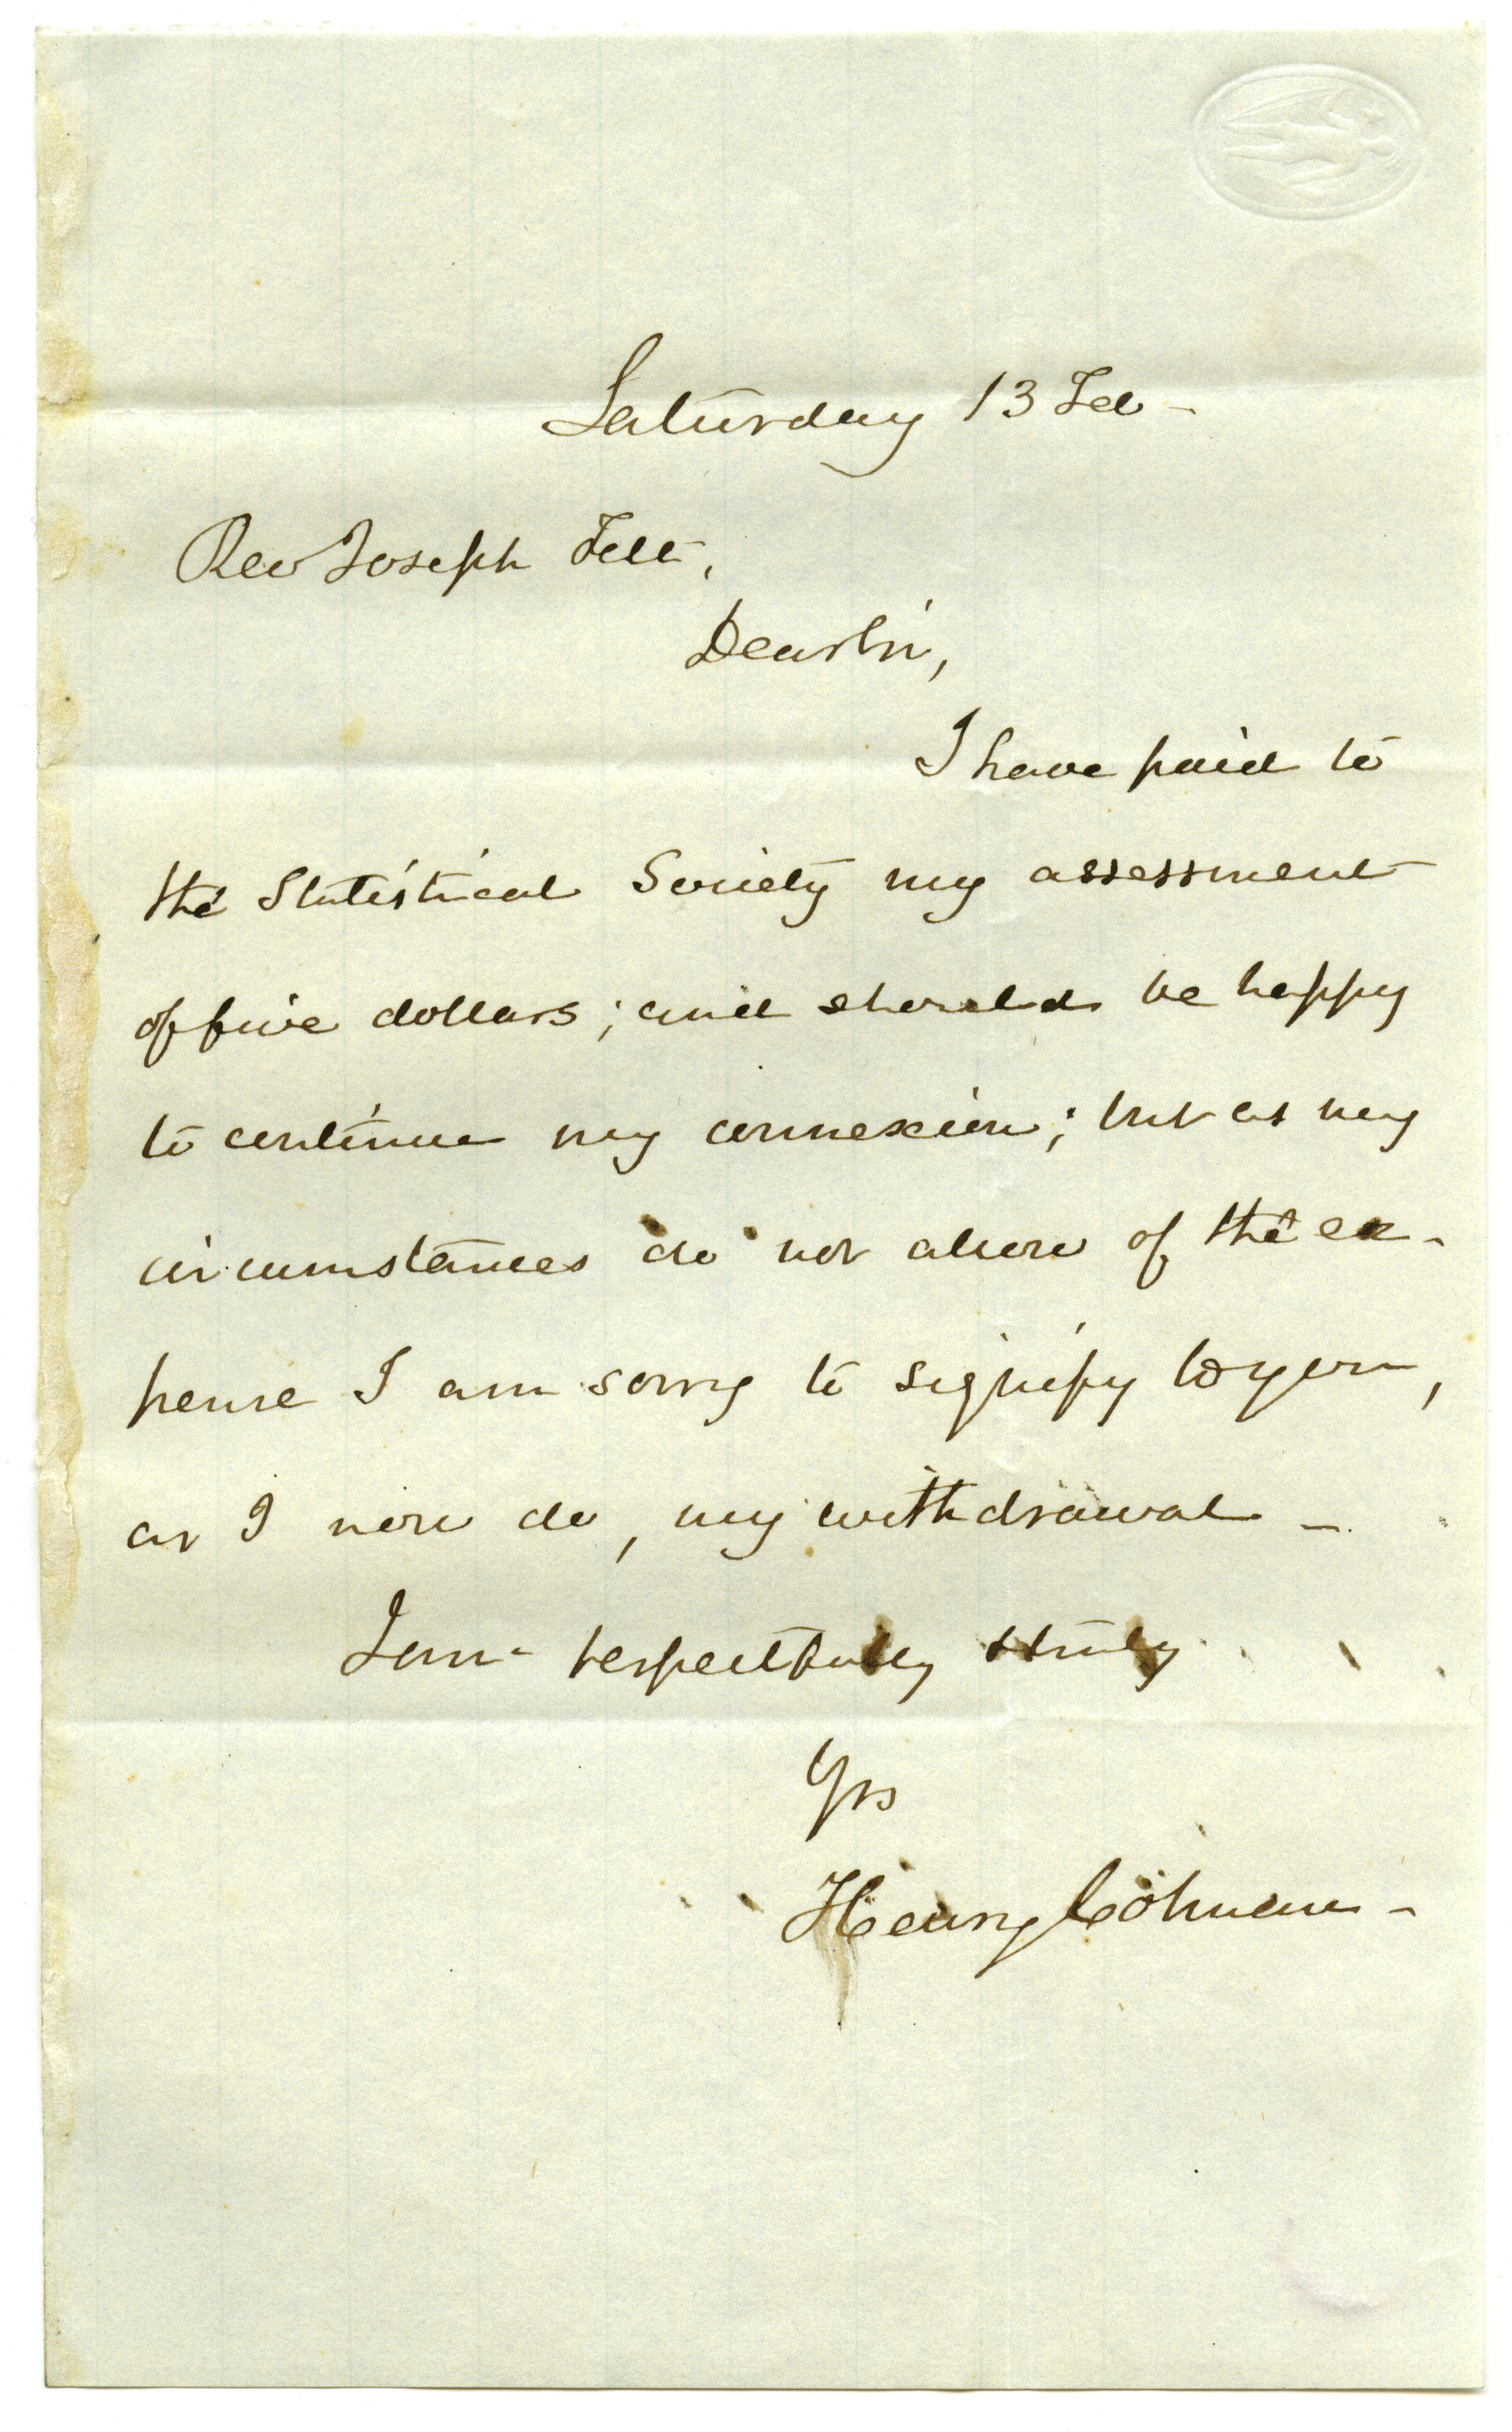 Saturday 13 Feb -
Rev Joseph Felt,
Dear Sir,
I have paid to
the Statistical Society my assessment
of five dollars; and should be happy
to continue my connexion; but as my
circumstances do not allow of the ex-
pense I am sorry to signify to you,
as I now do, my withdrawal -
I am respectfully & truly
Yrs
Henry Colman -